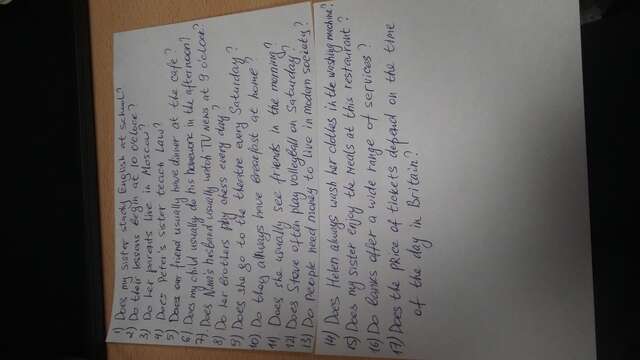 1) Does my sister study English at school?
2) Do their lessons begin at 10 o'clock?
3) Do her parents live in Moscow?
4) Does Peter's sister teach Law?
5) Does our friend usually have dinner at the cafe?
6) Does my child usually do his homework in the afternoon?
7) Does Nina's husband usually watch TV news at 9 o'clock?
8) Do her brothers play chess every day?
9) Does she go to the theatre every Saturday?
10) Do they allways have breakfast at home?
11) Does she usually see friends in the morning?
12) Does Steve often play volleyball on Saturday?
13) Do people need money to live in modern society?
14) Does Helen always wash her clothes in the washing machine?
15) Does my sister enjoy the meals at this restaurant?
16) Do banks offer a wide range of services?
17) Does the price of tickets depend on the time
of the day in Britain?